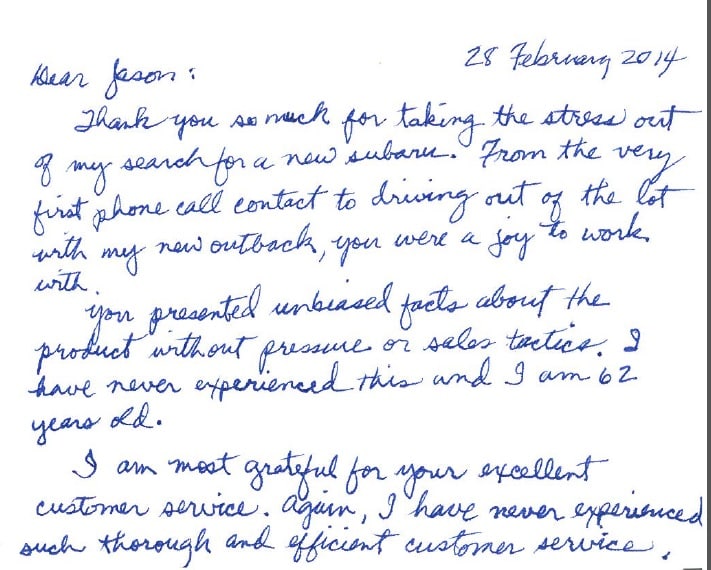 28 February 2014
Dear Jason:
Thank you so much for taking the stress out
of my search for a new subaru. From the very
first phone call contact to driving out of the lot
with my new outback, you were a joy to work
with.
You presented unbiased facts about the
product without pressure or sales tactics. I
have never experienced this and I am 62
years old.
I am most grateful for your excellent
customer service. Again, I have never experienced
such thorough and efficient customer service.